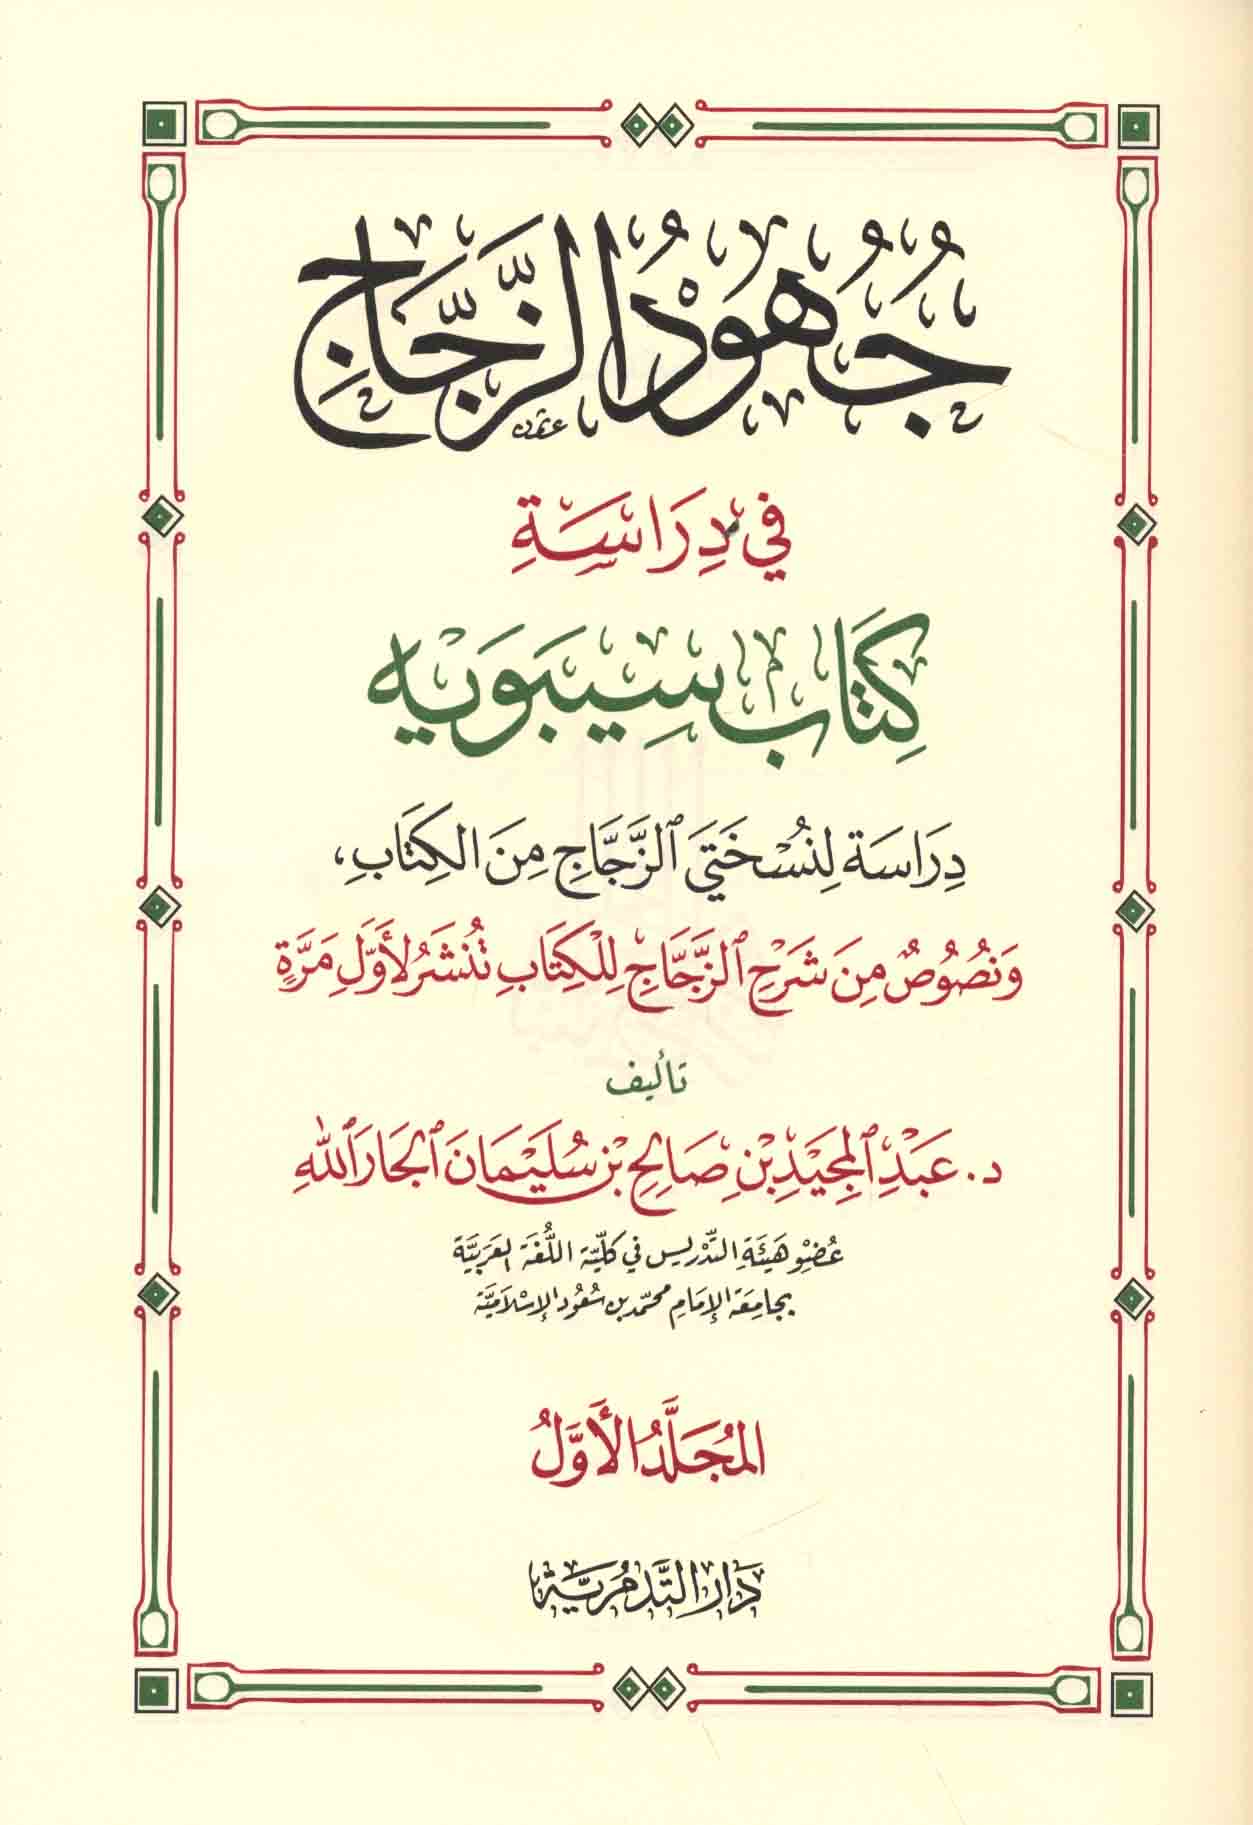 جُهُودُ الزَّجَّاجِ
فِي دِرَاسَةِ
كِتَابِ سِيبَوَيْهِ
دِرَاسَة لِنُسْخَتَيِ ٱلزَّجَّاجِ مِنَ الكِتَابِ،
وَنُصُوصٌ مِنَ شَرْحِ ٱلزَّجَّاجِ لِلْكِتَابِ تُنْشَرُ لأَوَّلِ مَرَّةٍ
تأليف
د. عَبْدِ ٱلمَجِيْدِ بْنِ صَالِحِ بْنِ سُلَيْمَانَ ٱلجَارَٱللهِ
عُضْوِ هَيْئَةِ التَّدْرِيس فِي كُلِّيَّة اللُّغَة العَرَبِيَّة
بِجَامِعَة الإِمَامِ محَمَّد بن سُعُود الإِسْلَامِيَّة
المُجَلَّدُ الأَوَّلُ
دَارُ التَّدْمُرِيَّة